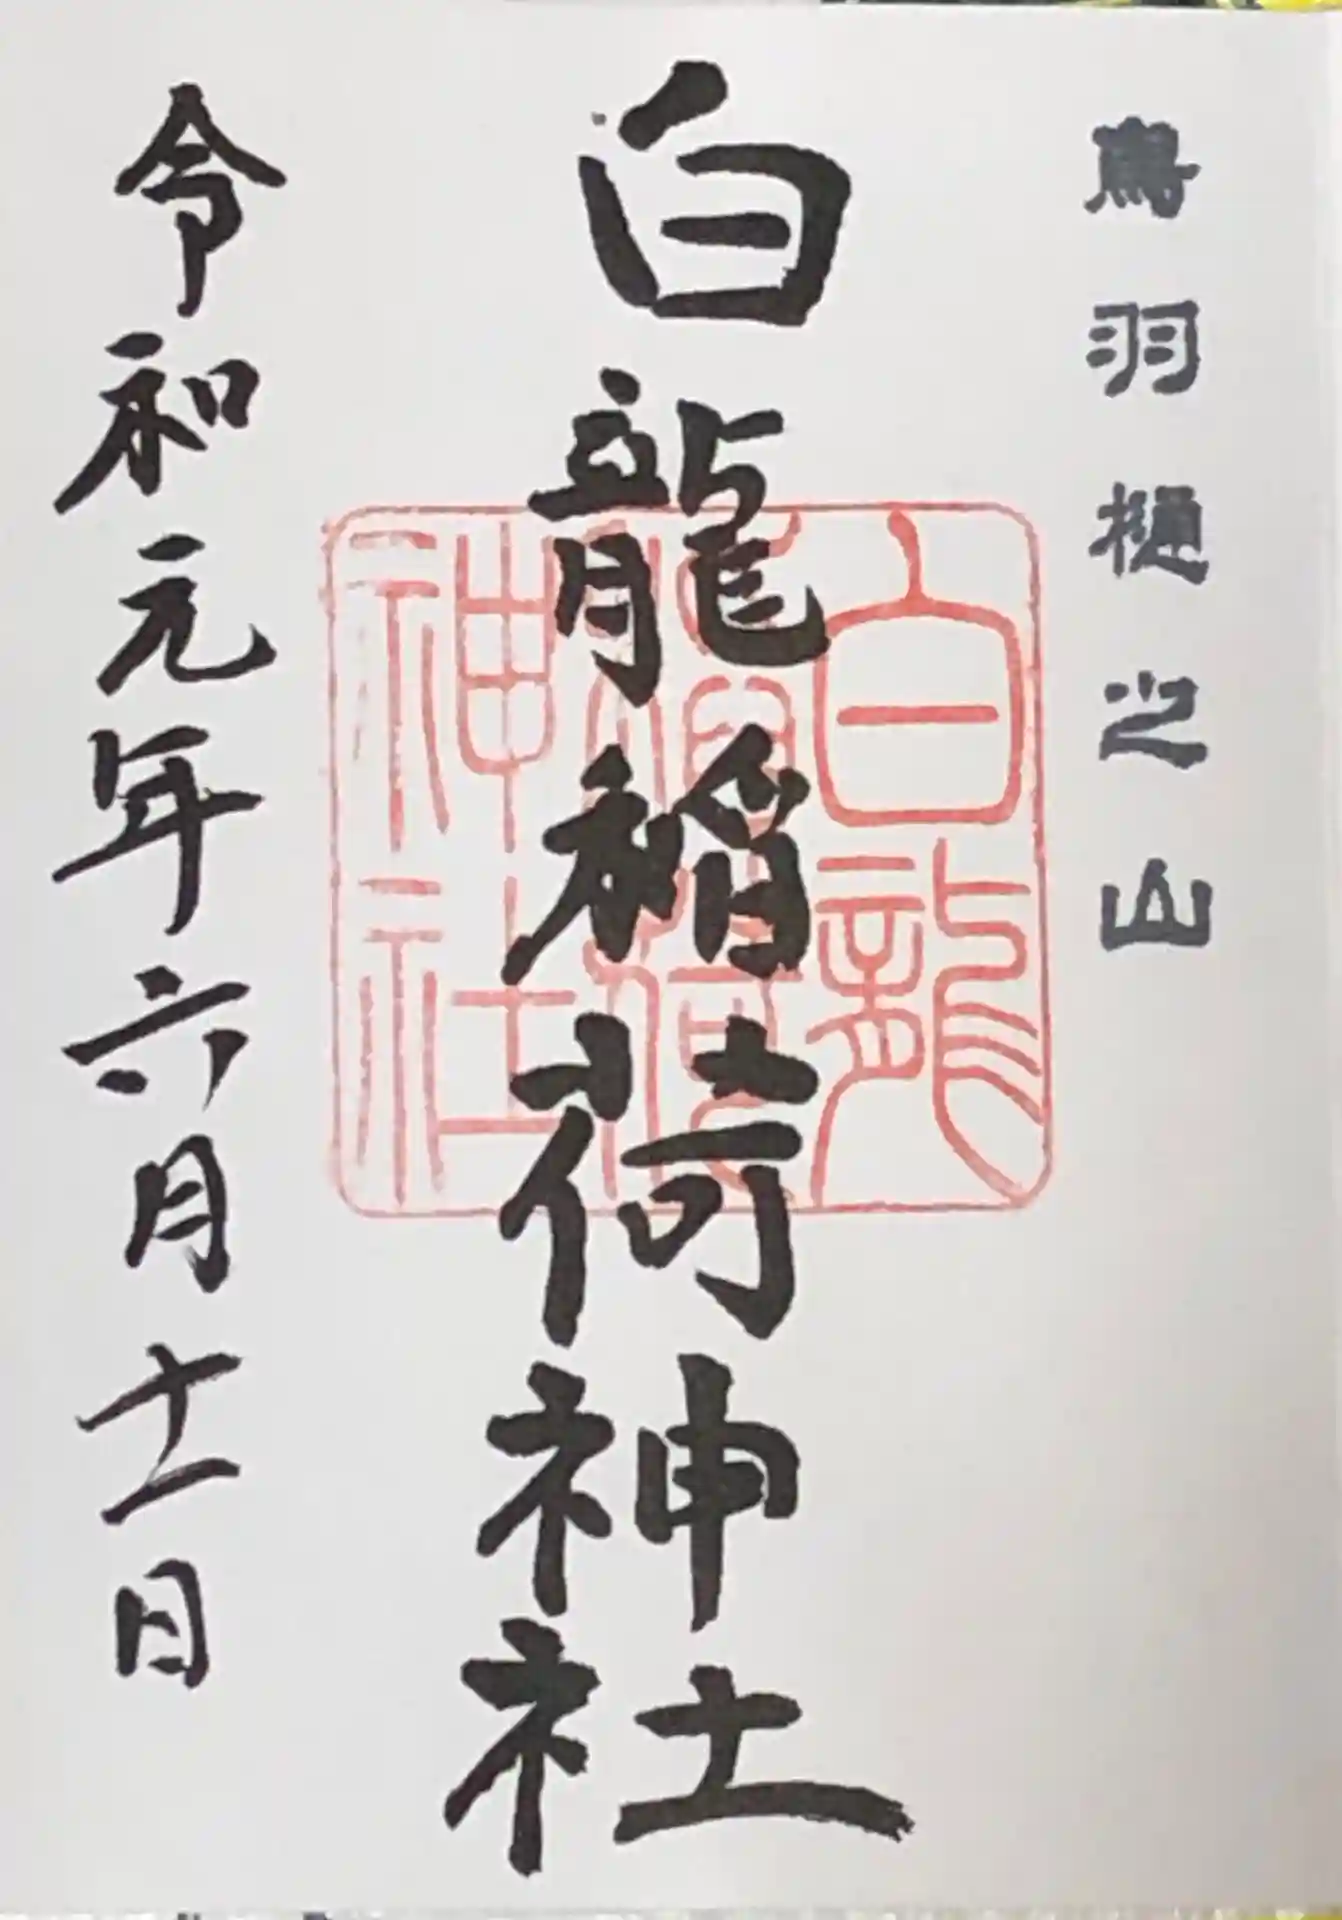 鳥羽樋之山
白龍稲荷神社
白龍
稲荷
神社
令和元年六月十一日